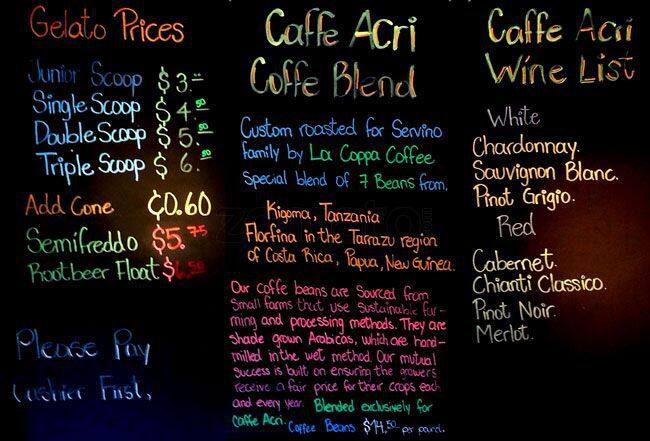 Gelato Prices
Junior Scoop $3.--
Single Scoop $4.50
Double Scoop $5.50
Triple Scoop $6.50
Add Cone $0.60
Semifreddo $5.75
Rootbeer Float $6.50
Please Pay
Cashier First,
Caffe Acri
Coffe Blend
Custom roasted for Servino
family by La Coppa Coffee
Special blend of 7 Beans from,
Kigoma, Tanzania
Florfina in the Tarrazu region
of Costa Rica, Papua, New Guinea.
Our coffe beans are Sourced from
Small farms that use sustainable far-
ming and processing methods. They are
shade grown Arabicas, which are hand-
milled in the wet method. Our mutual
success is built on ensuring the growers
receive a fair price for their crops each
and every year. Blended exclusively for
Caffe Acri.
Coffee Beans $14.50 per pound.
Caffe Acri
Wine List
White
Chardonnay.
Sauvignon Blanc.
Pinot Grigio.
Red
Cabernet.
Chianti Classico.
Pinot Noir.
Merlot.